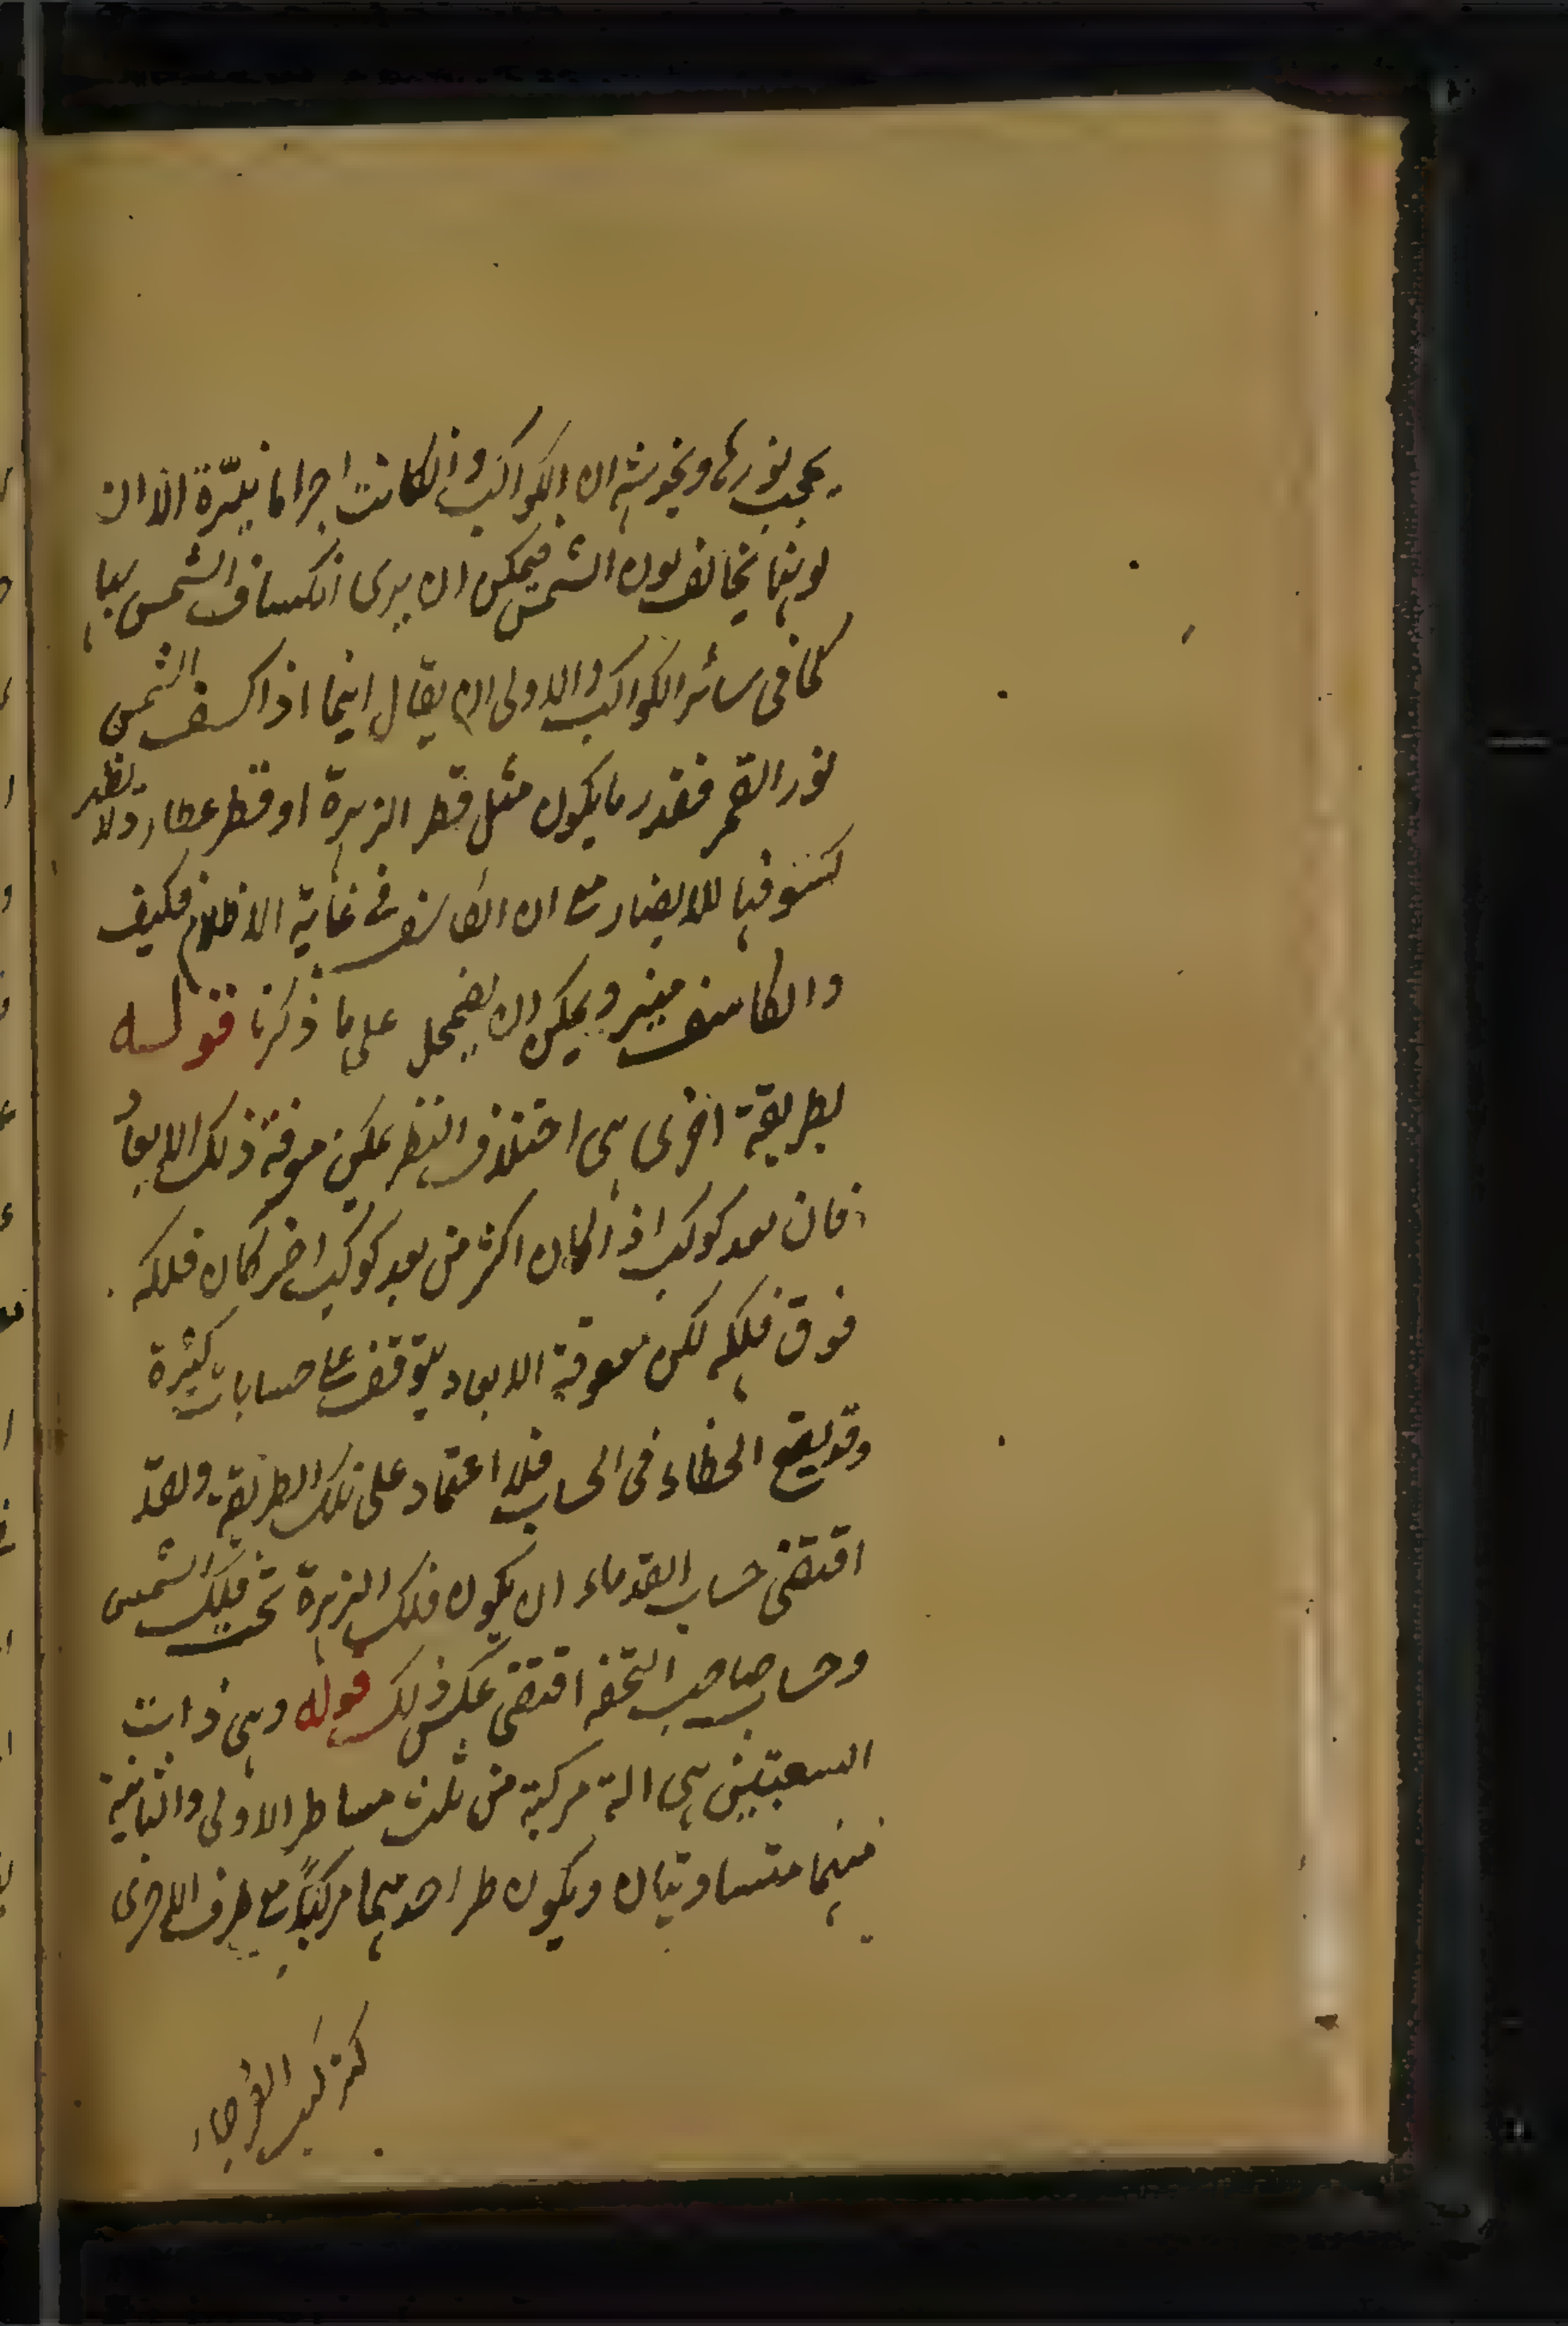 يحجب نورها ويخدشه ان الكواكب وانكانت اجراما نيّرة الا ان
لونها يخالف لون الشمس فيمكن ان يرى انكساف الشمس بها
كما فى سائر الكواكب والاولى ان يقال انها اذا كسف الشمس
نور القمر فقدر ما يكون مثل قطر الزهرة او قطر عطارد لا يظهر
كسوفها للابصار مع ان الكاسف فى غاية الاظلام فكيف
والكاسف منير ويمكن ان يضمحل على ما ذكرنا قوله
بطريقة اخرى هى اختلاف النظر يمكن معرفة ذلك الابعاد
فان بعد كوكب اذا كان اكثر من بعد كوكب اخر كان فلكه
فوق فلكه لكن معرفة الابعاد يتوقف على حسابات كثيرة
وقد يقع الخطاء فى الحساب فلا اعتماد على تلك الطريقة ولقد
اقتضى حساب القدماء ان يكون فلك الزهرة تحت فلك الشمس
وحساب صاحب التحفه اقتضى عكس ذلك قوله وهى ذات
الشعبتين هى الة مركبة من ثلث مساطر الاولى والثانية
منهما متساويتان ويكون طر احديهما مركباً مع طرف الاخرى
كتركيب